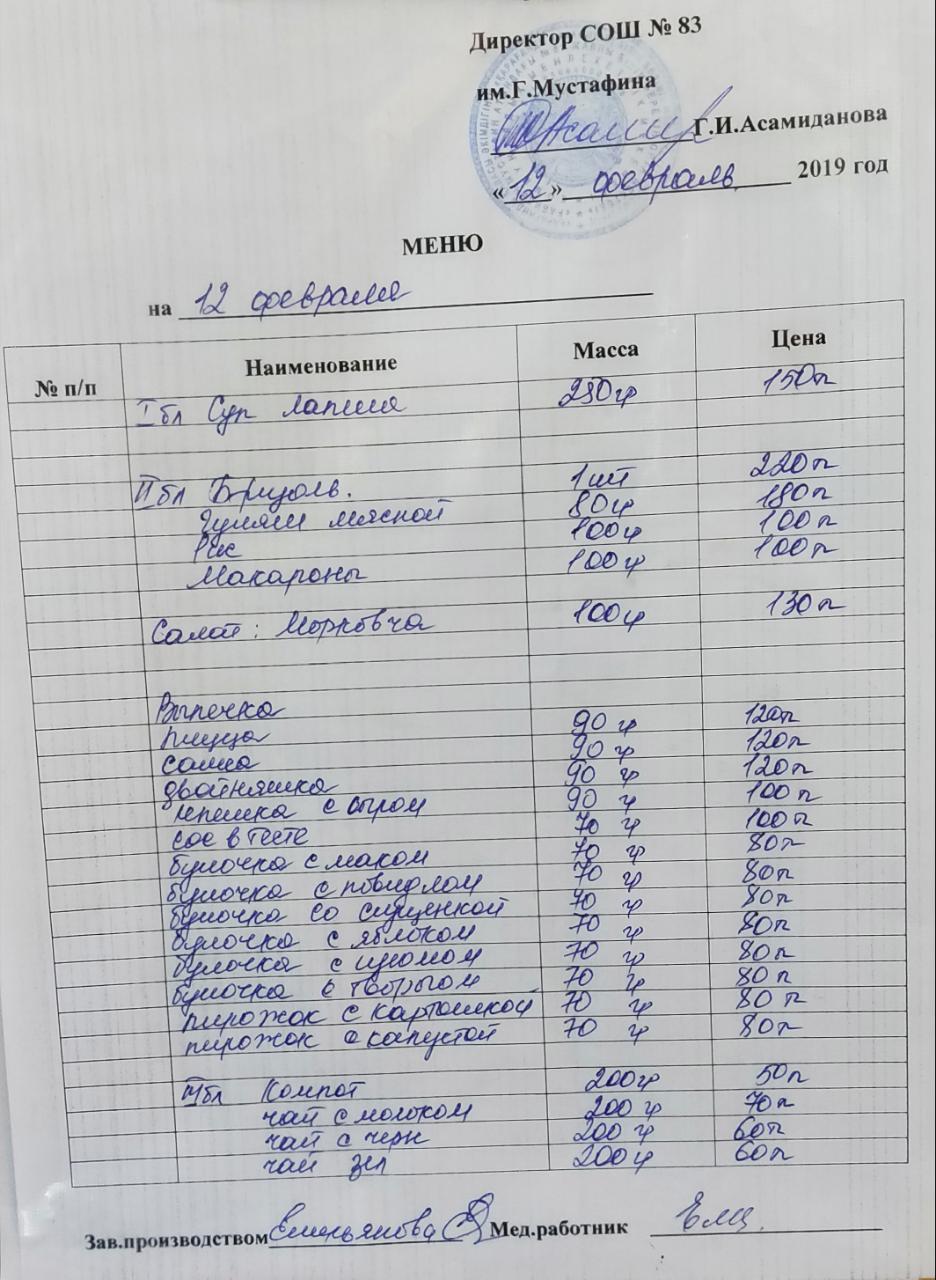 Директор СОШ № 83
им.Г.Мустафина
Г.И.Асамиданова
« 12 » февраль 2019 год
МЕНЮ
на 12 февраля
№ п/п Наименование Масса Цена
I бл Суп лапша 250 гр 150 т
II бл Бризоль. 1 шт 220 т
Гуляш мясной 80 гр 180 т
Рис 100 гр 100 т
Макароны 100 гр 100 т
Салат: Морковча 100 гр 130 т
Выпечка
пицца 90 гр 120 т
самса 90 гр 120 т
двойняшка 90 гр 120 т
лепешка с сыром 90 гр 100 т
сос в тесте 70 гр 100 т
булочка с маком 70 гр 80 т
булочка с повидлом 70 гр 80 т
булочка со сгущенкой 70 гр 80 т
булочка с яблоком 70 гр 80 т
булочка с изюмом 70 гр 80 т
булочка с творогом 70 гр 80 т
пирожок с картошкой 70 гр 80 т
пирожок с капустой 70 гр 80 т
III бл Компот 200 гр 50 т
чай с молоком 200 гр 70 т
чай с черн 200 гр 60 т
чай зел 200 гр 60 т
Зав.производством Емельянова Мед.работник